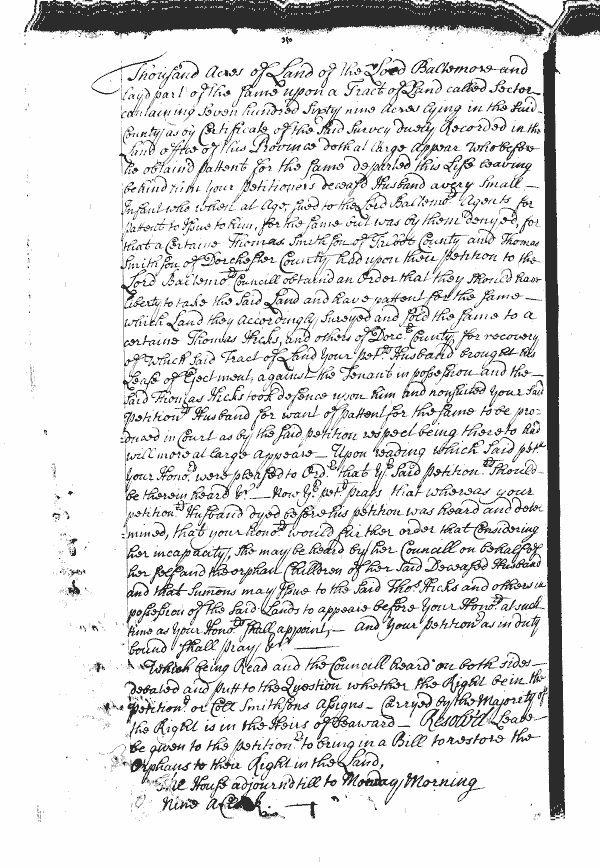 Thousand Acres of Land of the Lord Baltemore and
layd part of the same upon a Tract of Land called Sector
containing Seven hundred Sixty nine Acres lying in the said
County as by Certificate of the said Survey duely Recorded in the
Land office of this Province doth at large Appear who before
he obtaind pattent for the same departed this Life leaving
behind him your petitioners deceasd Husband a very Small
Infant who when at Age, sued to the Lord Baltemo.rs Agents for
pattent to Issue to him, for the same but was by them denyed, for
that a Certaine Thomas Smithson of Talbott County and Thomas
Smithson of Dorchester County had upon their petition to the
Lord Baltemo.rs Councill obtaind an order that they should have
liberty to take the Said Land and have pattent for the same
which Land they Accordingly Surveyed and sold the same to a
certaine Thomas Hicks, and others of Dorc.r County, for recovery
of which said Tract of Land your pet.rs Husband brought his
Lease of Ejectment, against the Tenant in possession and the
Said Thomas Hicks took defence upon him and nonsuited your Said
Petition.rs Husband for want of pattent for the same to be pro-
duced in Court as by the said petition respect being there to had
will more at large appeare — Upon reading which Said pet.n
your Hono.rs were pleased to Ord.r that y.r Said Petition.rs Should
be therein heard &c. — Now y.r pet.r prays that whereas your
petition.rs Husband dyed before his petition was heard and deter
mined, that your hono.rs would further order that Considering
her incapacity, She may be heard by her Councill on behalf of
her self and the orphan Children of her said Deceased Husband
and that Sumons may Issue to the Said Tho.s Hicks and others in
possession of the Said Lands to appeare before your Hono.rs at such
time as your Hono.rs shall appoint, — And your petition.r as in duty
bound shall pray, &c. —
Which being Read and the Councill heard on both sides
debated and putt to the Question whether the Right be in the
Petition.r or Coll Smithsons Assigns — Carryed by the Majority of
the Right is in the Heirs of — Resolv'd Leave
be given to the petition.r to bring in a Bill to restore the
Orphans to their Right in the Land,
The House adjournd till to Monday Morning
Nine a Clock.